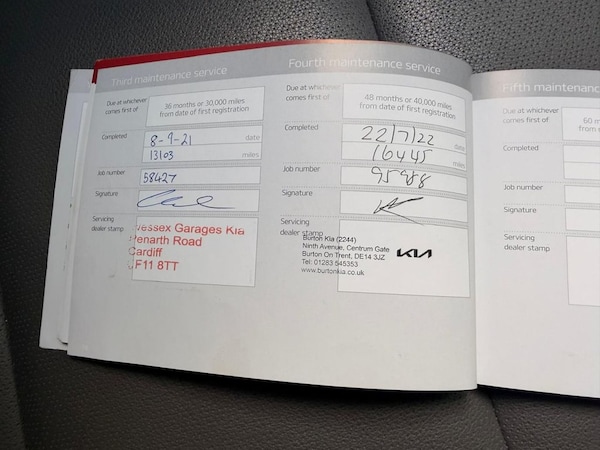 Third maintenance service
Due at whichever comes first of
36 months or 30,000 miles
from date of first registration
Completed
8-9-21 date
13103 miles
Job number
58427
Signature
Servicing
dealer stamp
essex Garages Kia
enarth Road
Cardiff
F11 8TT
Fourth maintenance service
Due at whichever
comes first of
48 months or 40,000 miles
from date of first registration
Completed
22/7/22
16445 miles
Job number
95988
Signature
Servicing
dealer stamp
Burton Kia (2244)
Ninth Avenue, Centrum Gate
Burton On Trent, DE14 3JZ
Tel: 01283 545353
www.burtonkia.co.uk
KIA
Fifth maintenanc
Due at whichever
comes first of
60 m
from
Completed
Job number
Signature
Servicing
dealer stamp